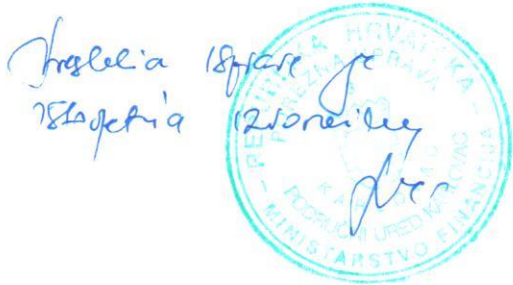 Preslika isprave je
istovjetna izvorniku
REPUBLIKA HRVATSKA
MINISTARSTVO FINANCIJA
POREZNA UPRAVA
PODRUČNI URED KARLOVAC